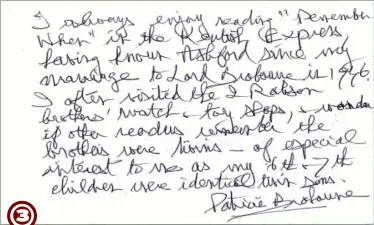 I always enjoy reading "Remember
When" in the Kentish Express
having known Ashford since my
marriage to Lord Brabourne in 1946.
I often visited the 2 Robson
brothers' watch & toy shops, & wonder
if other readers remember the
brothers were twins – of especial
interest to me as my 6th & 7th
children were identical twin sons.
Patricia Brabourne
3